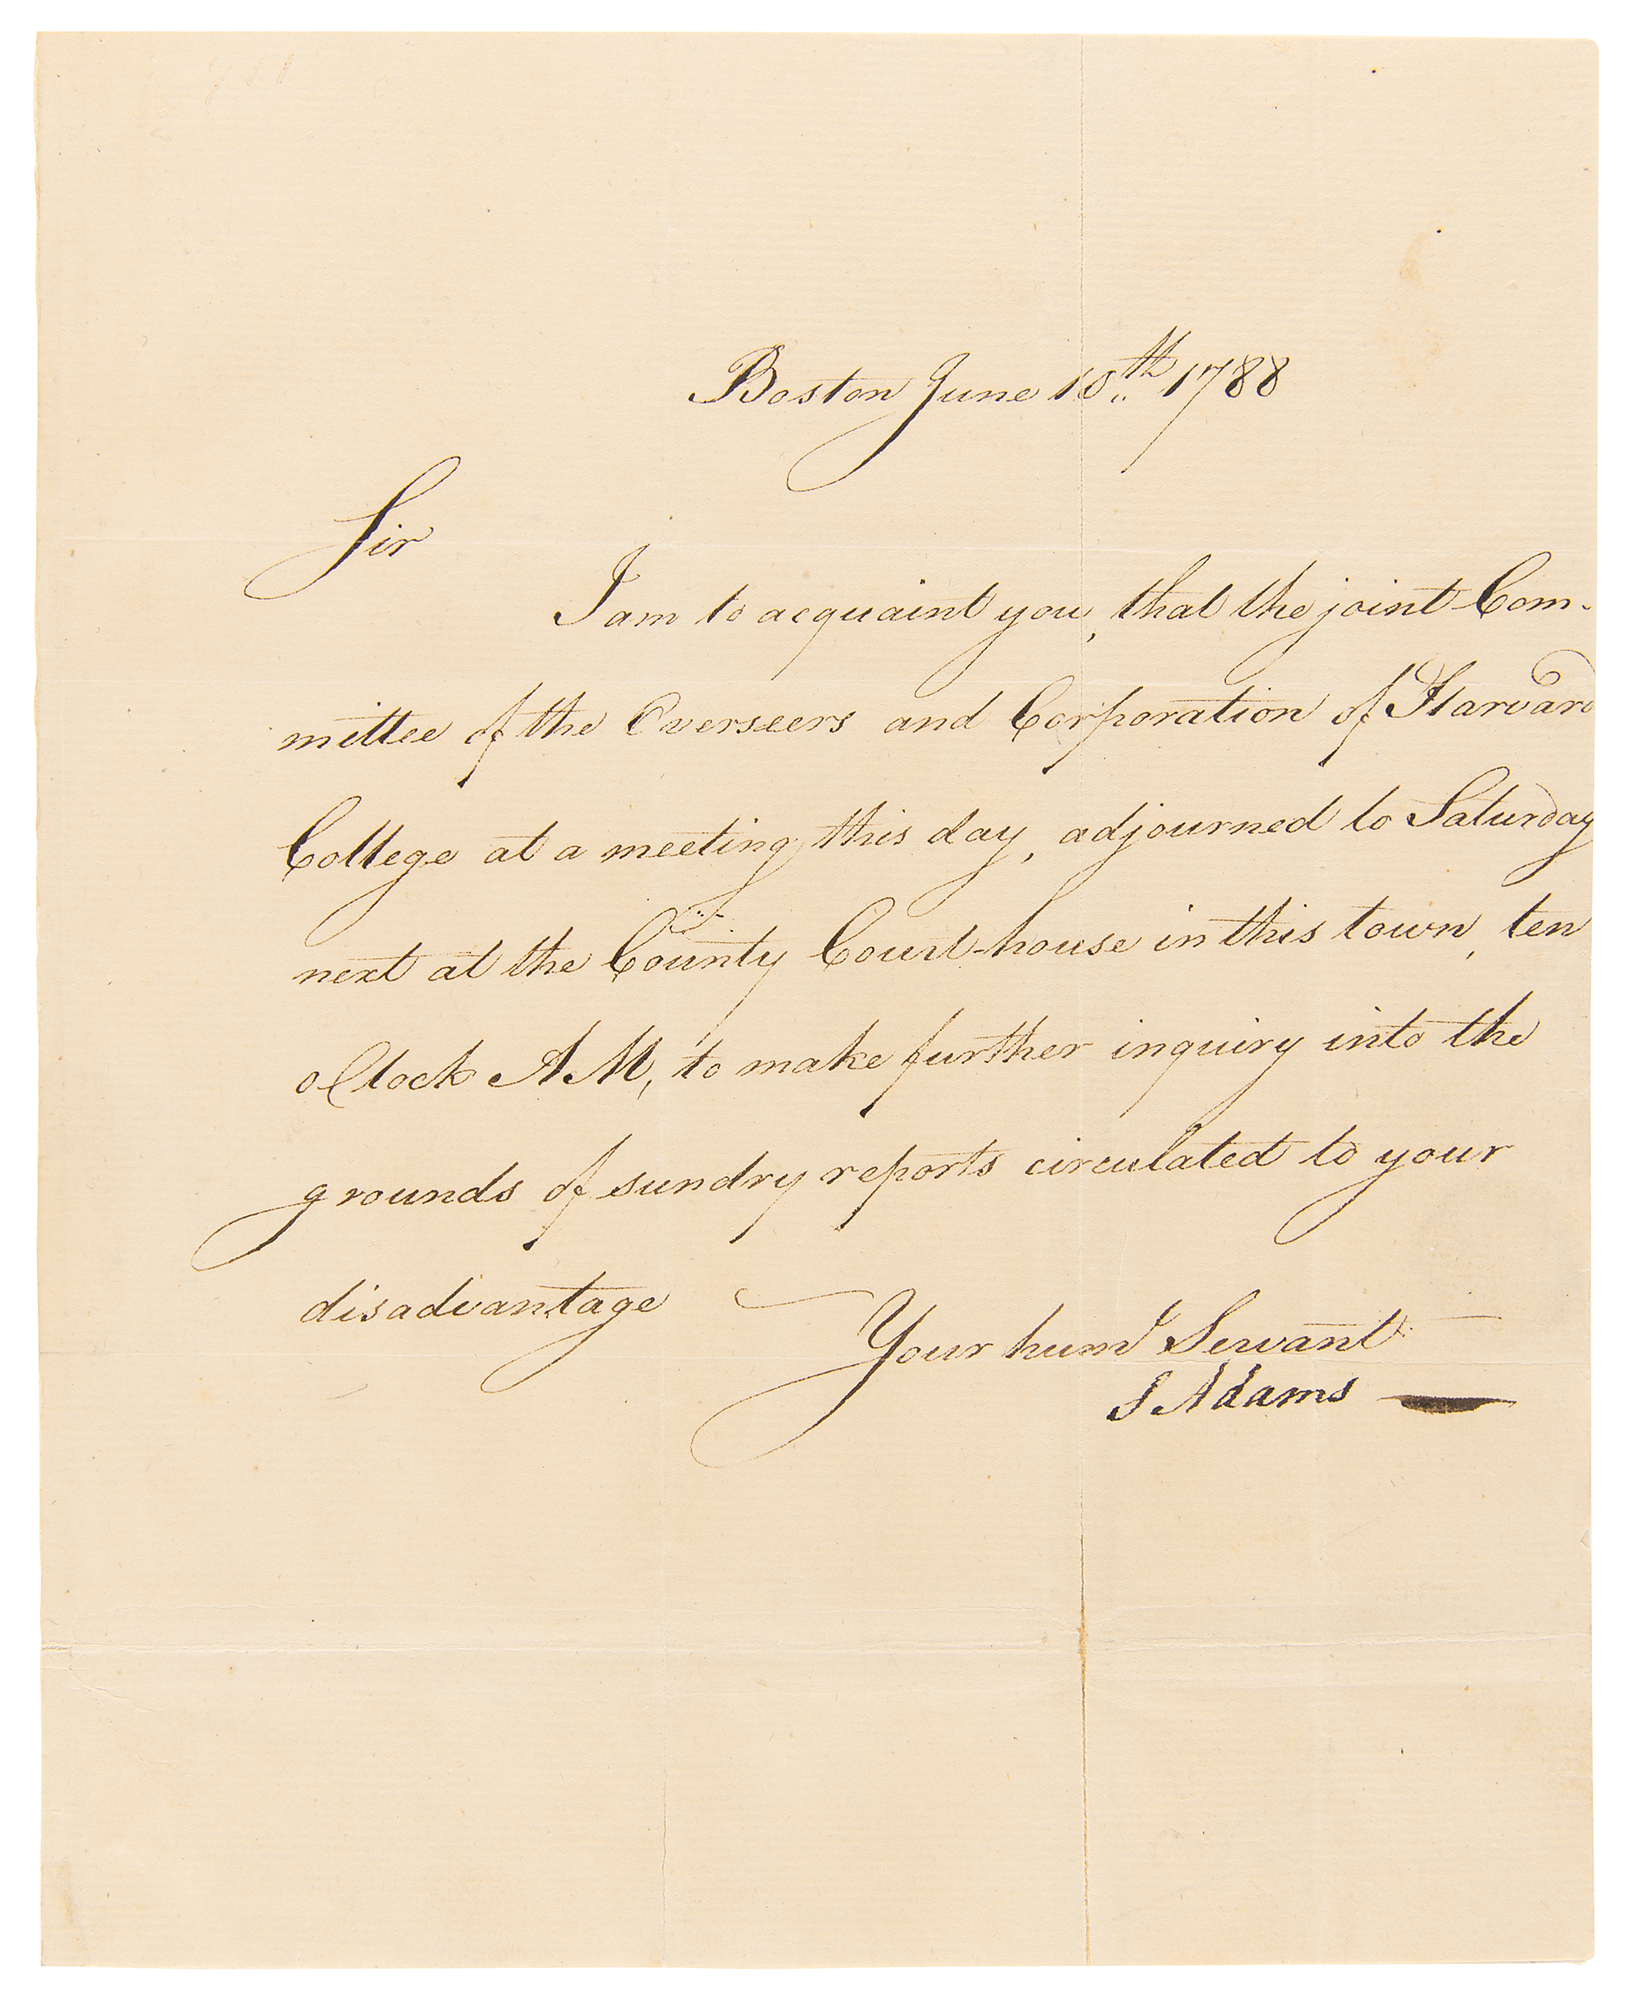 Boston June 10th 1788
Sir
I am to acquaint you, that the joint Com-
mittee of the Overseers and Corporation of Harvard
College at a meeting this day, adjourned to Saturday
next at the County Court-house in this town, ten
oClock AM, to make further inquiry into the
grounds of sundry reports circulated to your
disadvantage
Your humd Servant
S Adams